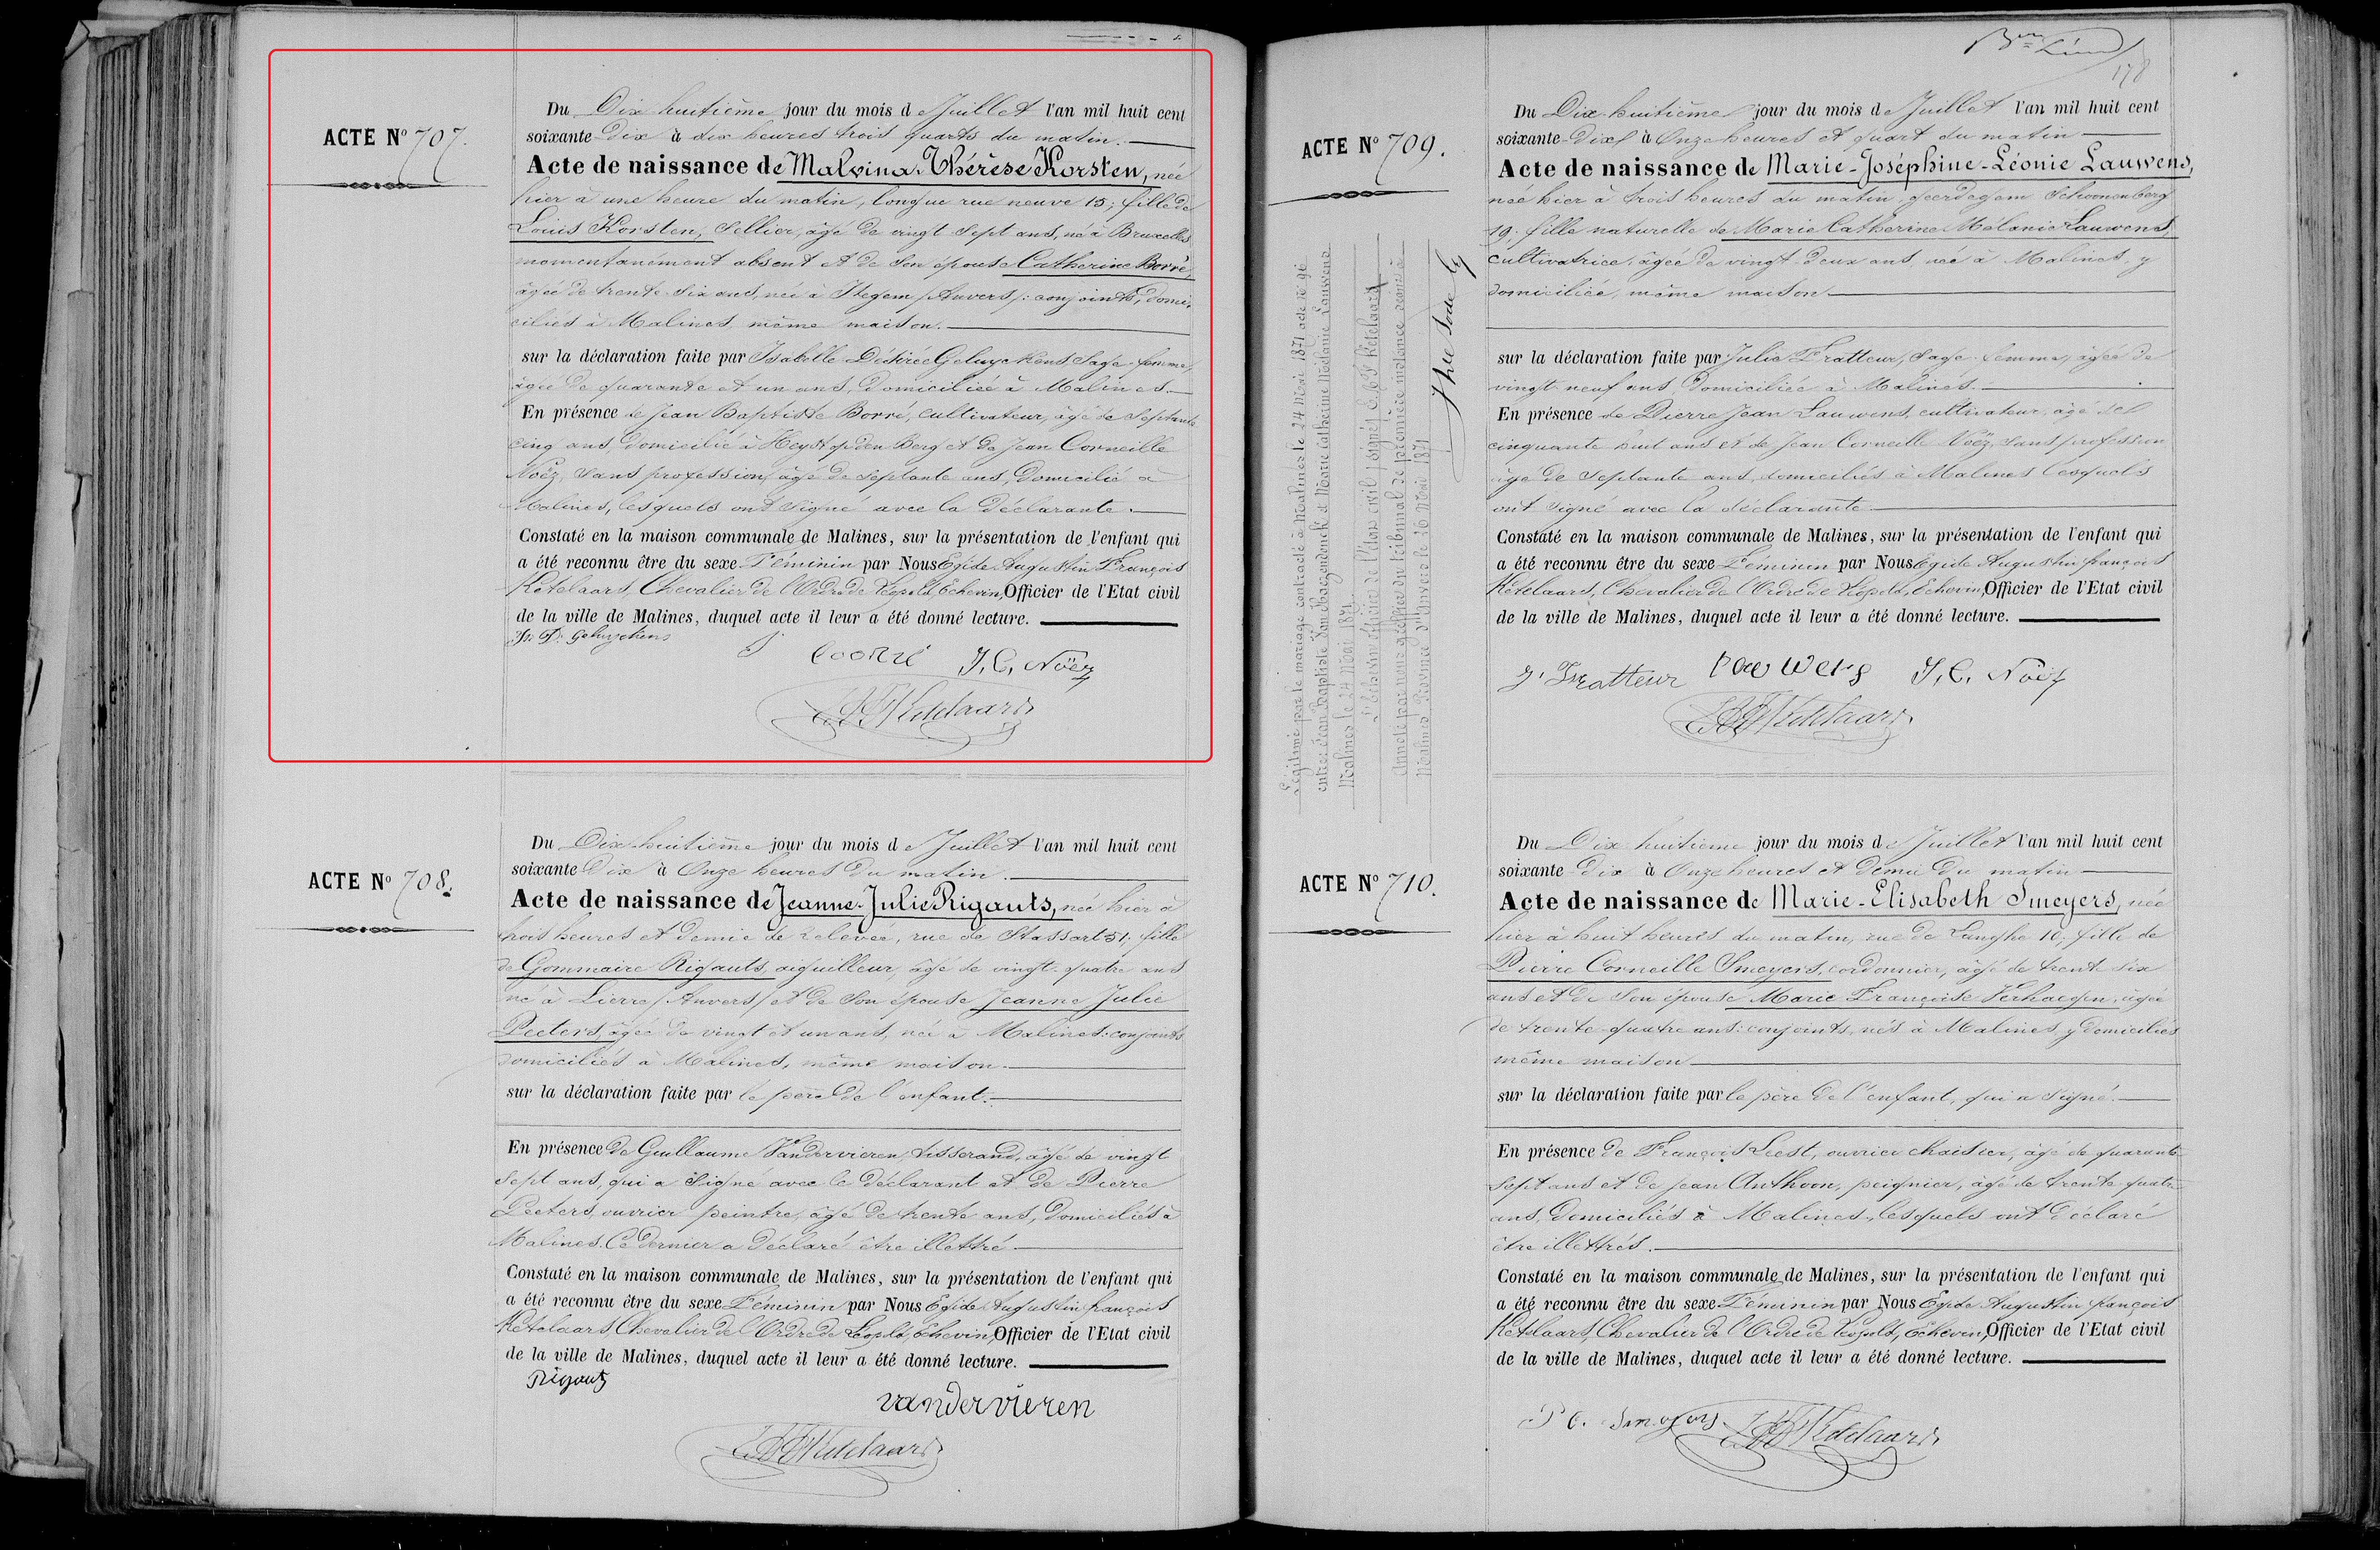 ACTE Nº 707.
Du Dix huitième jour du mois de Juillet l'an mil huit cent
soixante Dix à dix heures trois quarts du matin.
Acte de naissance de Malvina-Thérèse Korsten, née
hier à une heure du matin, longue rue neuve 15; fille de
Louis Korsten, Sellier, âgé de vingt sept ans, né à Bruxelles
momentanément absent et de son épouse Catherine Borré,
âgée de trente-six ans, née à Itegem (Anvers): conjoints, domi-
ciliés à Malines, même maison.
sur la déclaration faite par Isabelle Désirée Geluyckens, Sage-femme,
âgée de quarante et un ans, Domiciliée à Malines.
En présence de Jean Baptiste Borré, cultivateur, âgé de septante
cinq ans, domicilié à Heyst op den Berg et de Jean Corneille
Noëz, sans profession, âgé de septante ans, Domicilié à
Malines, lesquels ont signé avec la Déclarante.
Constaté en la maison communale de Malines, sur la présentation de l'enfant qui
a été reconnu être du sexe Féminin par Nous Egide Augustin François
Ketelaars, Chevalier de l'Ordre de Léopold, Echevin, Officier de l'Etat civil
de la ville de Malines, duquel acte il leur a été donné lecture.
Is. D. Geluyckens
J. C. Noëz
ACTE Nº 708.
Du Dix-huitième jour du mois de Juillet l'an mil huit cent
soixante Dix à Onze heures du matin.
Acte de naissance de Jeanne-Julie Rigauts, née hier à
trois heures et demie de relevée, rue de Stassart 51; fille
de Gommaire Rigauts, aiguilleur, âgé de vingt-quatre ans
né à Lierre (Anvers) et de son épouse Jeanne Julie
Peeters, âgée de vingt et un ans, née à Malines: conjoints
domiciliés à Malines, même maison.
sur la déclaration faite par le père de l'enfant.
En présence de Guillaume Vandervieren, tisserand, âgé de vingt
sept ans, qui a signé avec le déclarant et de Pierre
Peeters, ouvrier peintre, âgé de trente ans, Domiciliés à
Malines. Ce dernier a déclaré être illettré.
Constaté en la maison communale de Malines, sur la présentation de l'enfant qui
a été reconnu être du sexe Féminin par Nous Egide Augustin François
Ketelaars, Chevalier de l'Ordre de Léopold, Echevin, Officier de l'Etat civil
de la ville de Malines, duquel acte il leur a été donné lecture.
Rigauts
vandervieren
178
ACTE Nº 709.
Légitimée par le mariage contracté à Malines le 24 Mai 1871, acte Nº 96
Malines le 24 Mai 1871.
Du Dix-huitième jour du mois de Juillet l'an mil huit cent
soixante-Dix à Onze heures et quart du matin
Acte de naissance de Marie-Joséphine-Léonie Lauwens,
née hier à trois heures du matin, Geerdegem Schoonenberg
19; fille naturelle de Marie Catherine Mélanie Lauwens,
cultivatrice, âgée de vingt-deux ans, née à Malines, y
domiciliée, même maison
sur la déclaration faite par Julie Fratteur, Sage-femme, âgée de
vingt neuf ans, Domiciliée à Malines.
En présence de Pierre Jean Lauwens, cultivateur, âgé de
cinquante huit ans et de Jean Corneille Noëz, sans profession
âgé de septante ans, domiciliés à Malines lesquels
ont signé avec la déclarante.
Constaté en la maison communale de Malines, sur la présentation de l'enfant qui
a été reconnu être du sexe Féminin par Nous Egide Augustin François
Ketelaars, Chevalier de l'Ordre de Léopold, Echevin, Officier de l'Etat civil
de la ville de Malines, duquel acte il leur a été donné lecture.
J. Fratteur Lauwens J. C. Noëz
ACTE Nº 710.
Du Dix huitième jour du mois de Juillet l'an mil huit cent
soixante Dix à Onze heures et demie du matin
Acte de naissance de Marie-Elisabeth Smeyers, née
hier à huit heures du matin, rue de Langhe 16; fille de
Pierre Corneille Smeyers, cordonnier, âgé de trente six
ans et de son épouse Marie Françoise Verhaegen, âgée
de trente-quatre ans: conjoints, nés à Malines, y domiciliés
même maison
sur la déclaration faite par le père de l'enfant, qui a signé.
En présence de François Liest, ouvrier chaisier, âgé de quarante
sept ans et de Jean Anthoon, peignier, âgé de trente quatre
ans, Domiciliés à Malines, lesquels ont déclaré
être illettrés.
Constaté en la maison communale de Malines, sur la présentation de l'enfant qui
a été reconnu être du sexe Féminin par Nous Egide Augustin François
Ketelaars, Chevalier de l'Ordre de Léopold, Echevin, Officier de l'Etat civil
de la ville de Malines, duquel acte il leur a été donné lecture.
P C. Smeyers